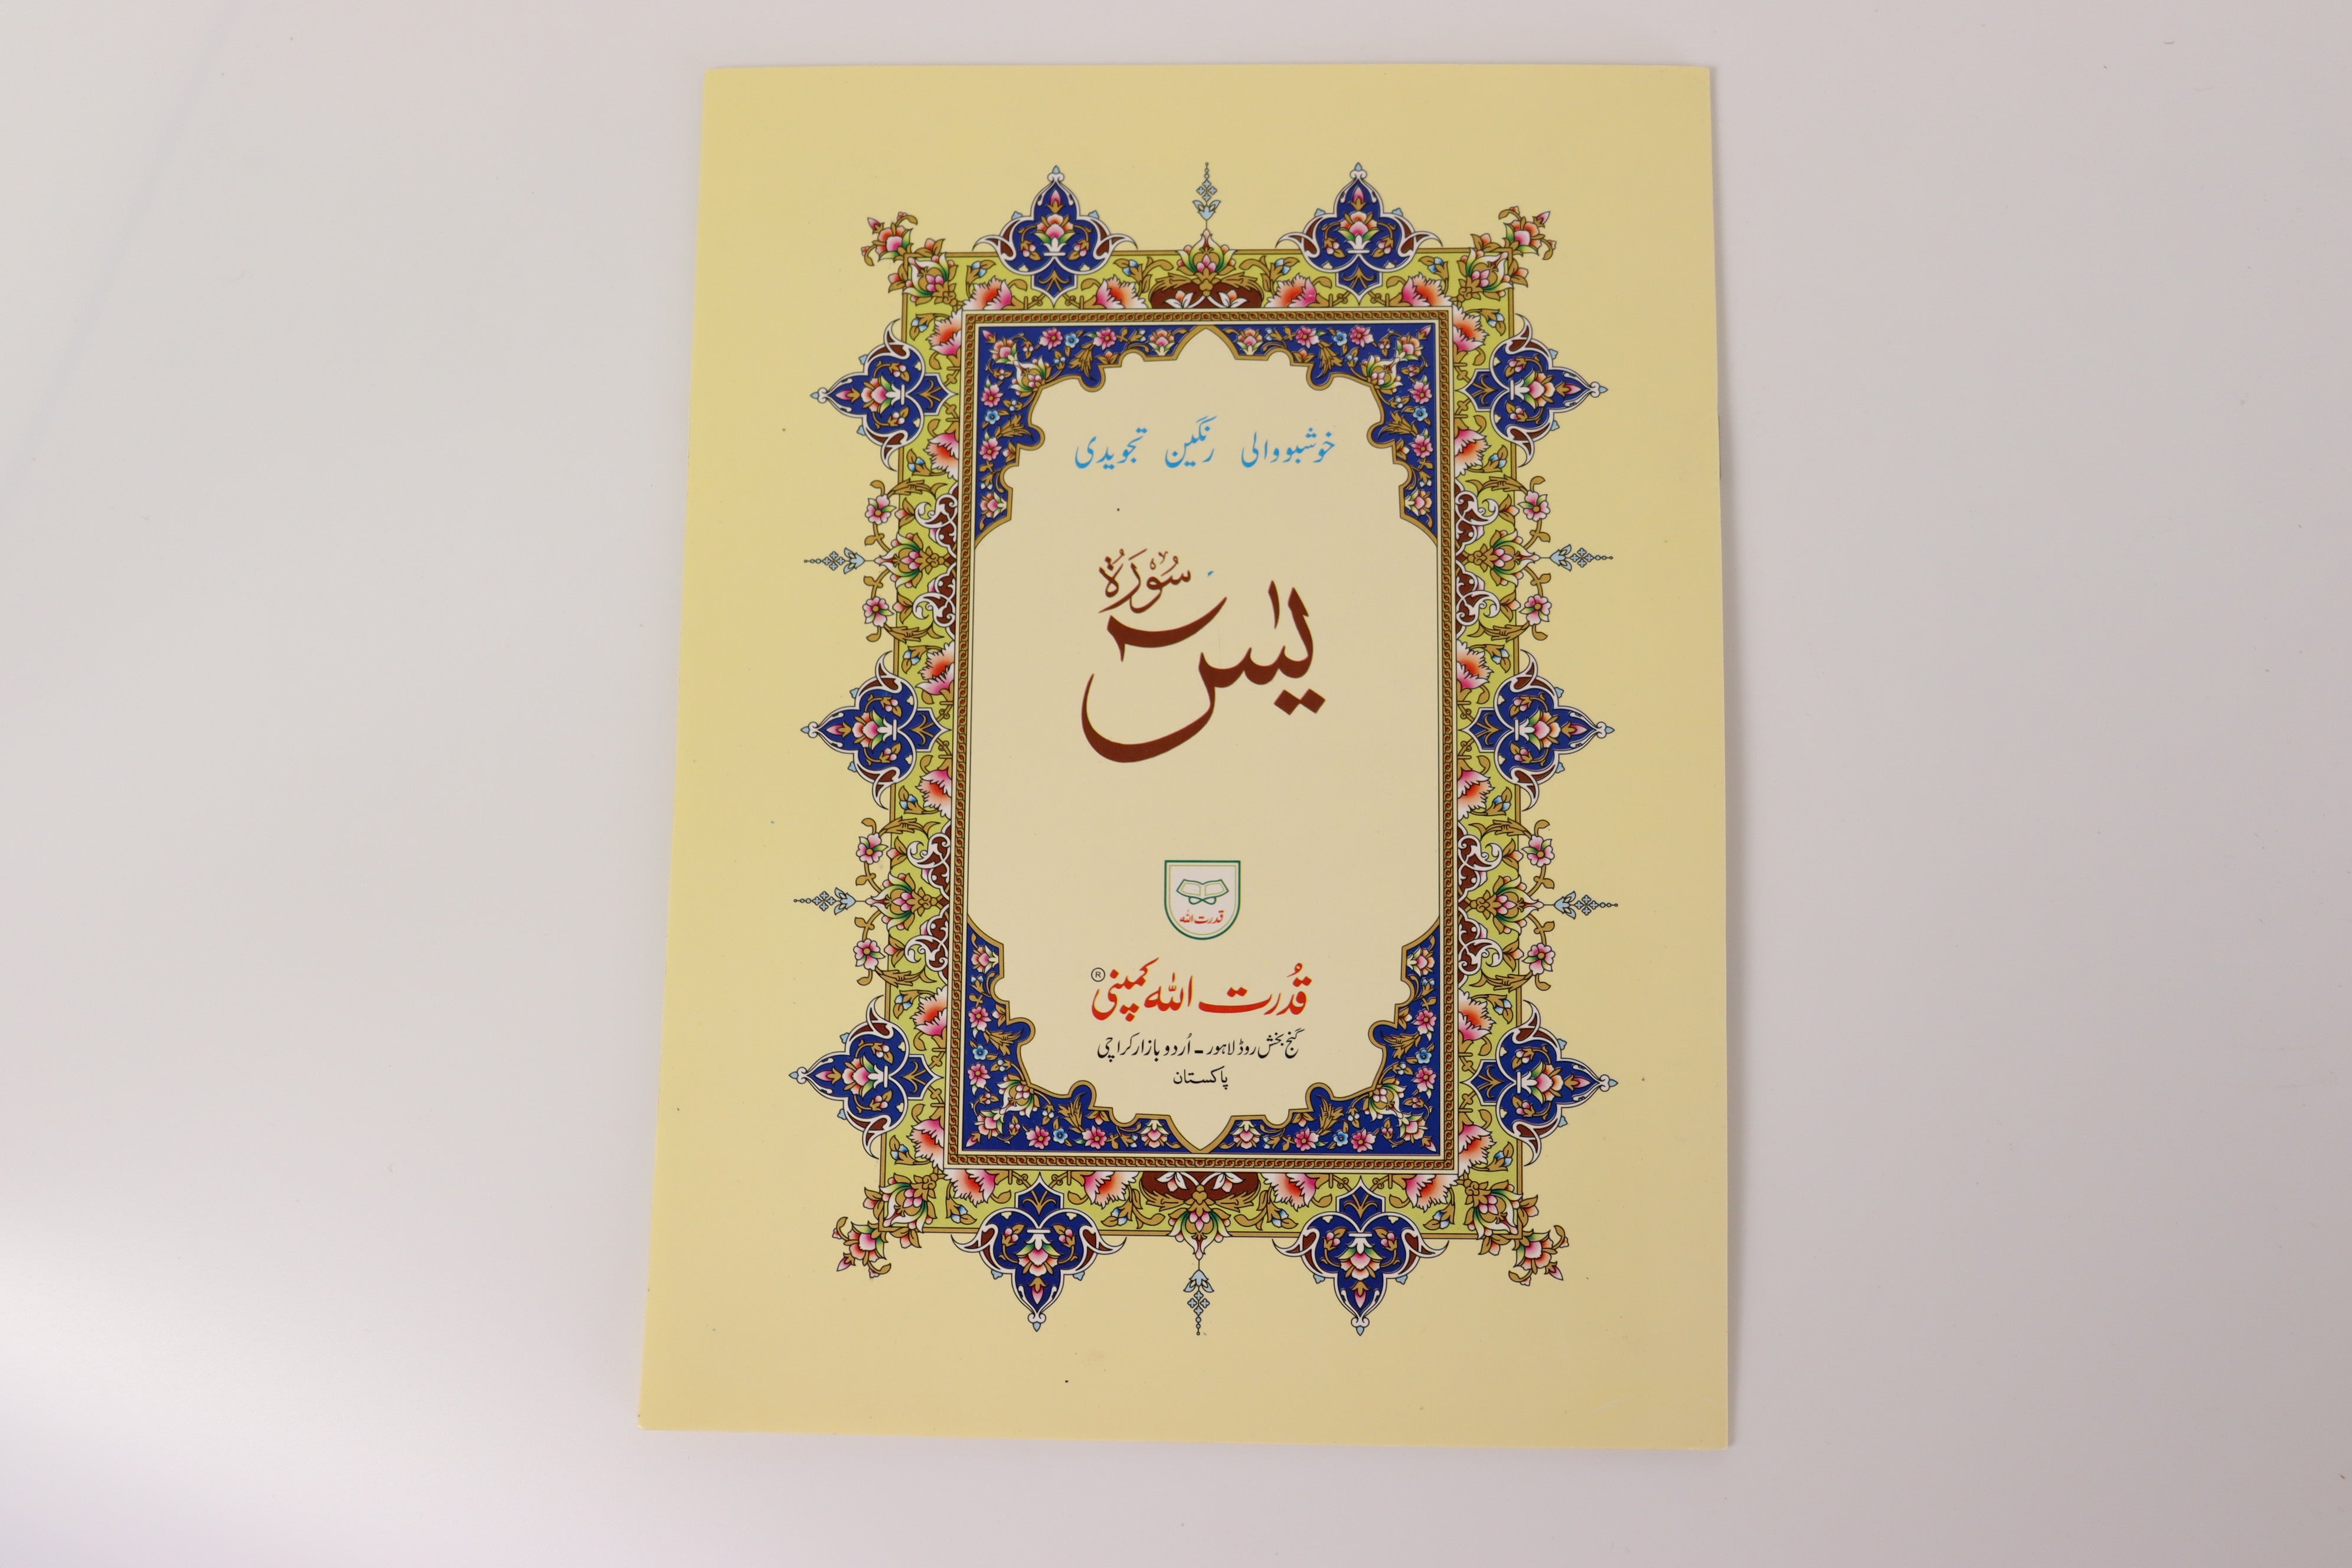 خوشبو والی رنگین تجویدی
سُوْرَۃُ
یٰسٓ
قدرت اللہ
قُدرت اللہ کمپنی ®
گنج بخش روڈ لاہور - اُردو بازار کراچی
پاکستان